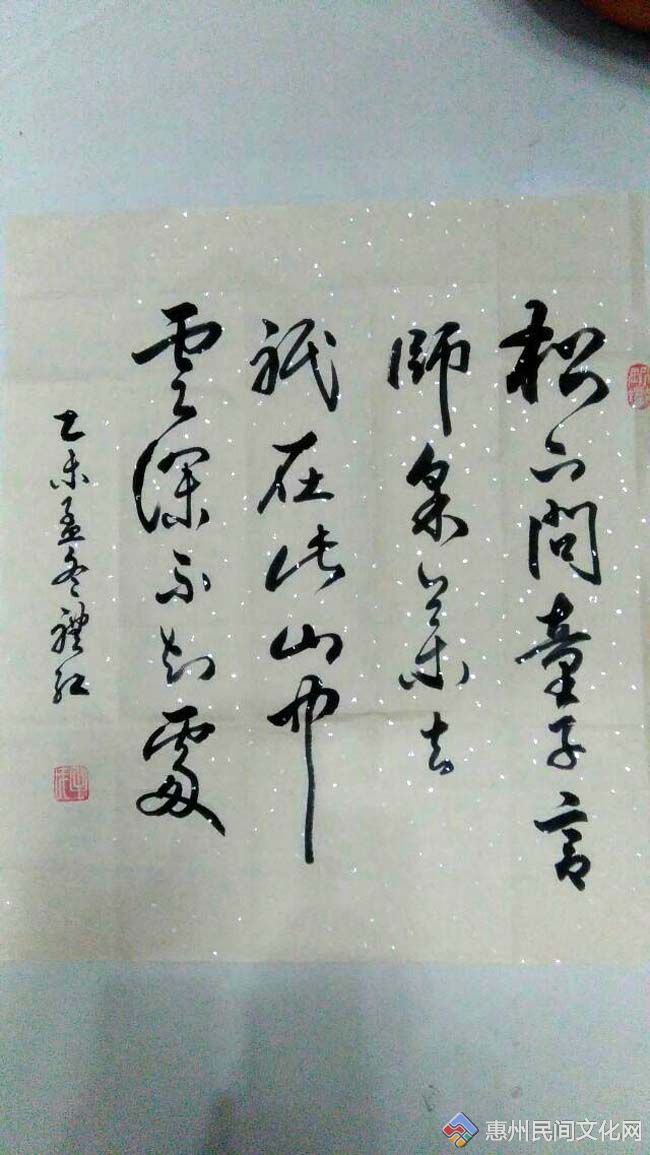 松下問童子言
師采藥去
祇在此山中
雲深不知處
乙未孟冬禮红
惠州民间文化网